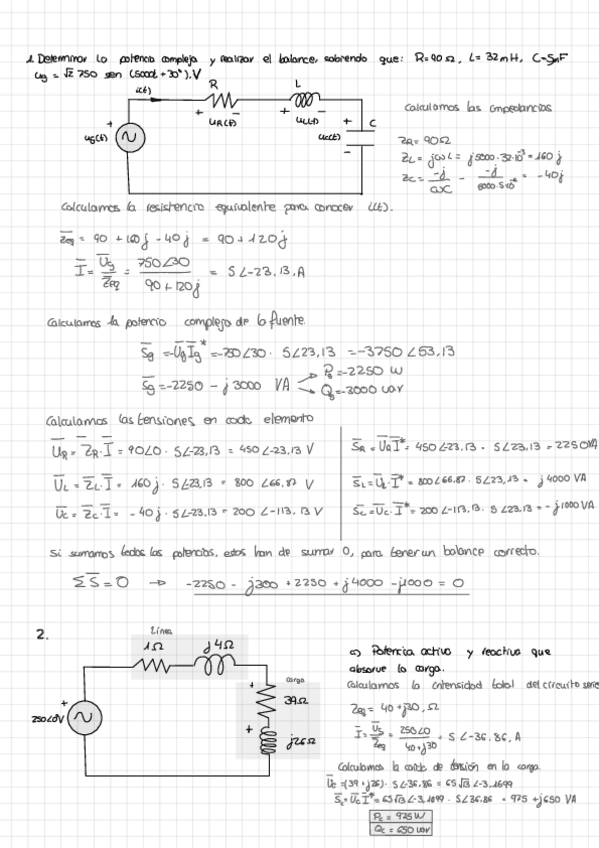 1. Determinar la potencia compleja y realizar el balance, sabiendo que: R=90Ω, L=32mH, C=5μF
ug = √2 750 sen (5000t+30°).V
i(t)
R
L
C
ug(t)
+ uR(t) -
+ uL(t) -
+ uc(t) -
Calculamos las impedancias
ZR = 90Ω
ZL = jωL = j5000·32·10⁻³ = 160j
ZC = -j/ωC = -j/5000·5·10⁻⁶ = -40j
Calculamos la resistencia equivalente para conocer i(t).
Zeq = 90 + 160j - 40j = 90 + 120j
I = Ug/Zeq = 750∠30/90+120j = 5∠-23,13, A
Calculamos la potencia compleja de la fuente.
Sg = -Ug Ig* = -750∠30 · 5∠23,13 = -3750∠53,13
Sg = -2250 - j3000 VA
Pg = -2250 W
Qg = -3000 var
Calculamos las tensiones en cada elemento
UR = ZR·I = 90∠0 · 5∠-23,13 = 450∠-23,13 V
UL = ZL·I = 160j · 5∠23,13 = 800∠66,87 V
UC = ZC·I = -40j · 5∠-23,13 = 200∠-113,13 V
SR = UR I* = 450∠-23,13 · 5∠23,13 = 2250VA
SL = UL·I* = 800∠66,87 · 5∠23,13 = j4000 VA
SC = UC·I* = 200∠-113,13 · 5∠23,13 = -j1000 VA
Si sumamos todas las potencias, estas han de sumar 0, para tener un balance correcto.
ΣS = 0 → -2250 - j300 + 2250 + j4000 - j1000 = 0
2.
Línea
1Ω
j4Ω
250∠0V
carga
39Ω
j26Ω
a) Potencia activa y reactiva que
absorve la carga.
Calculamos la intensidad total del circuito serie
Zeq = 40 + j30, Ω
I = Ug/Zeq = 250∠0/40+j30 = 5∠-36,86, A
Calculamos la caida de tensión en la carga.
Uc = (39 + j26) · 5∠-36,86 = 65√13∠-3,1699
Sc = Uc I* = 65√13∠-3,1699 · 5∠36,86 = 975 + j650 VA
Pc = 975W
Qc = 650 var